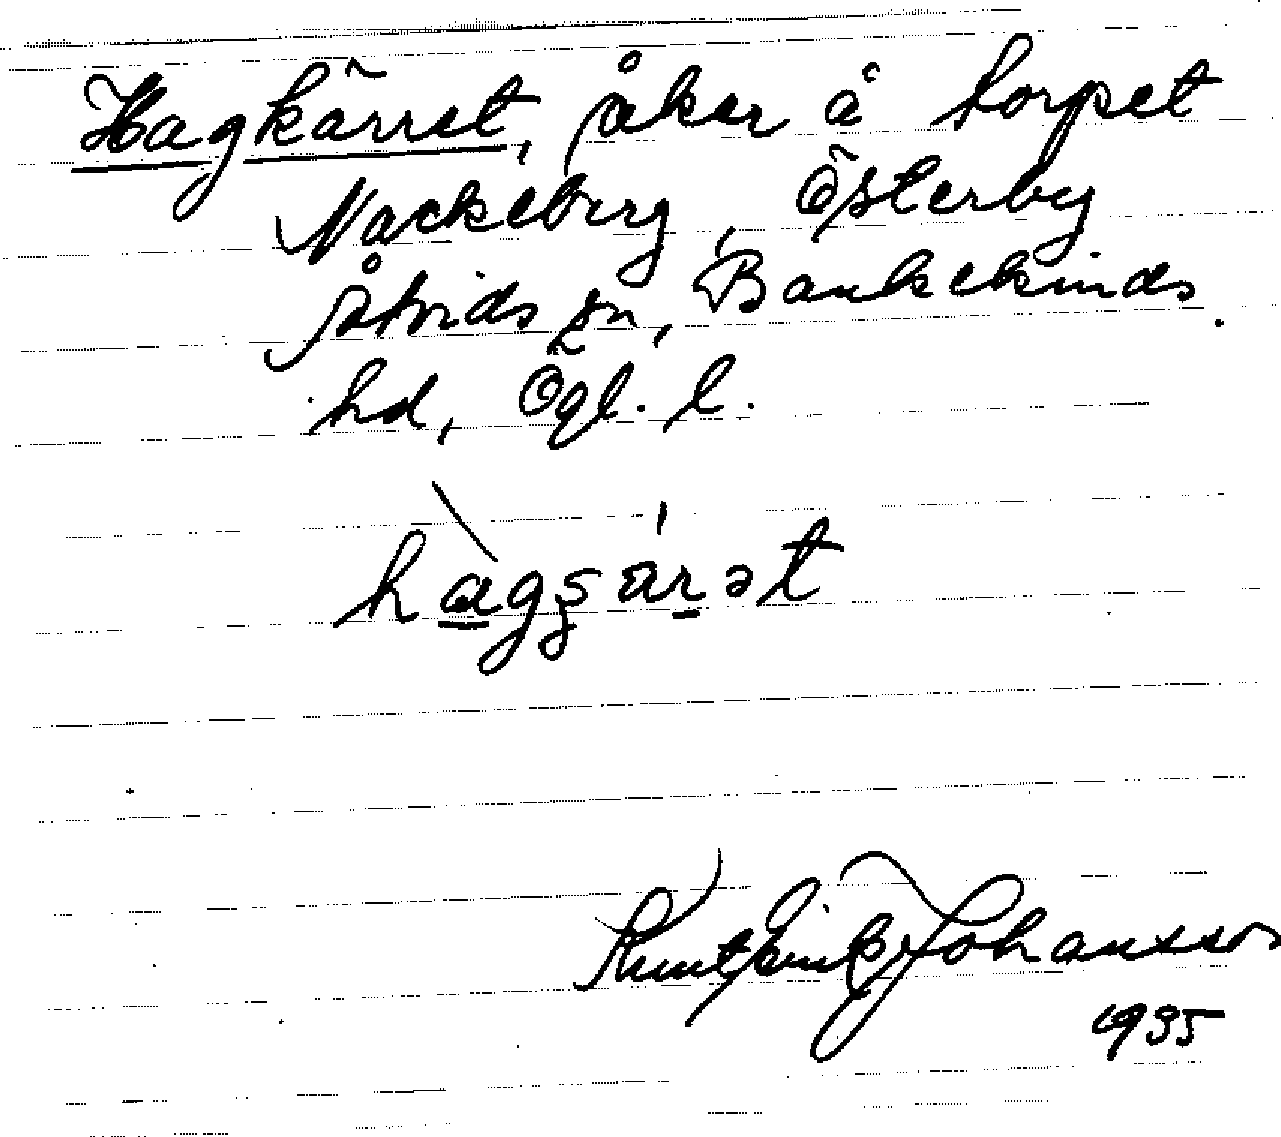 Hagkärret, åker å torpet
Nackeberg, Österby
Åtvids sn, Bankekinds
hd, Ögl. l.
hagʂärət
Knut Erik Johansson
1935